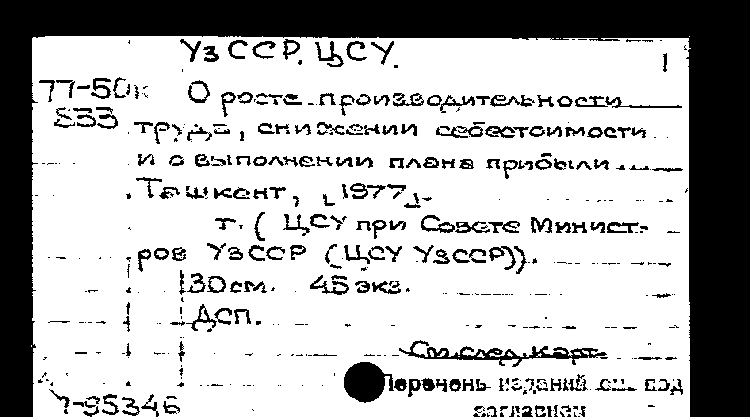 УзССР. ЦСУ.
1
77-50к
833
О росте производительности
труда, снижении себестоимости
и о выполнении плана прибыли
Ташкент, [1977].
т. (ЦСУ при Совете Минист-
ров УзССР (ЦСУ УзССР)).
30 см. 45 экз.
ДСП.
См. след. карт.
Перечень изданий см. под
заглавием
7-95346